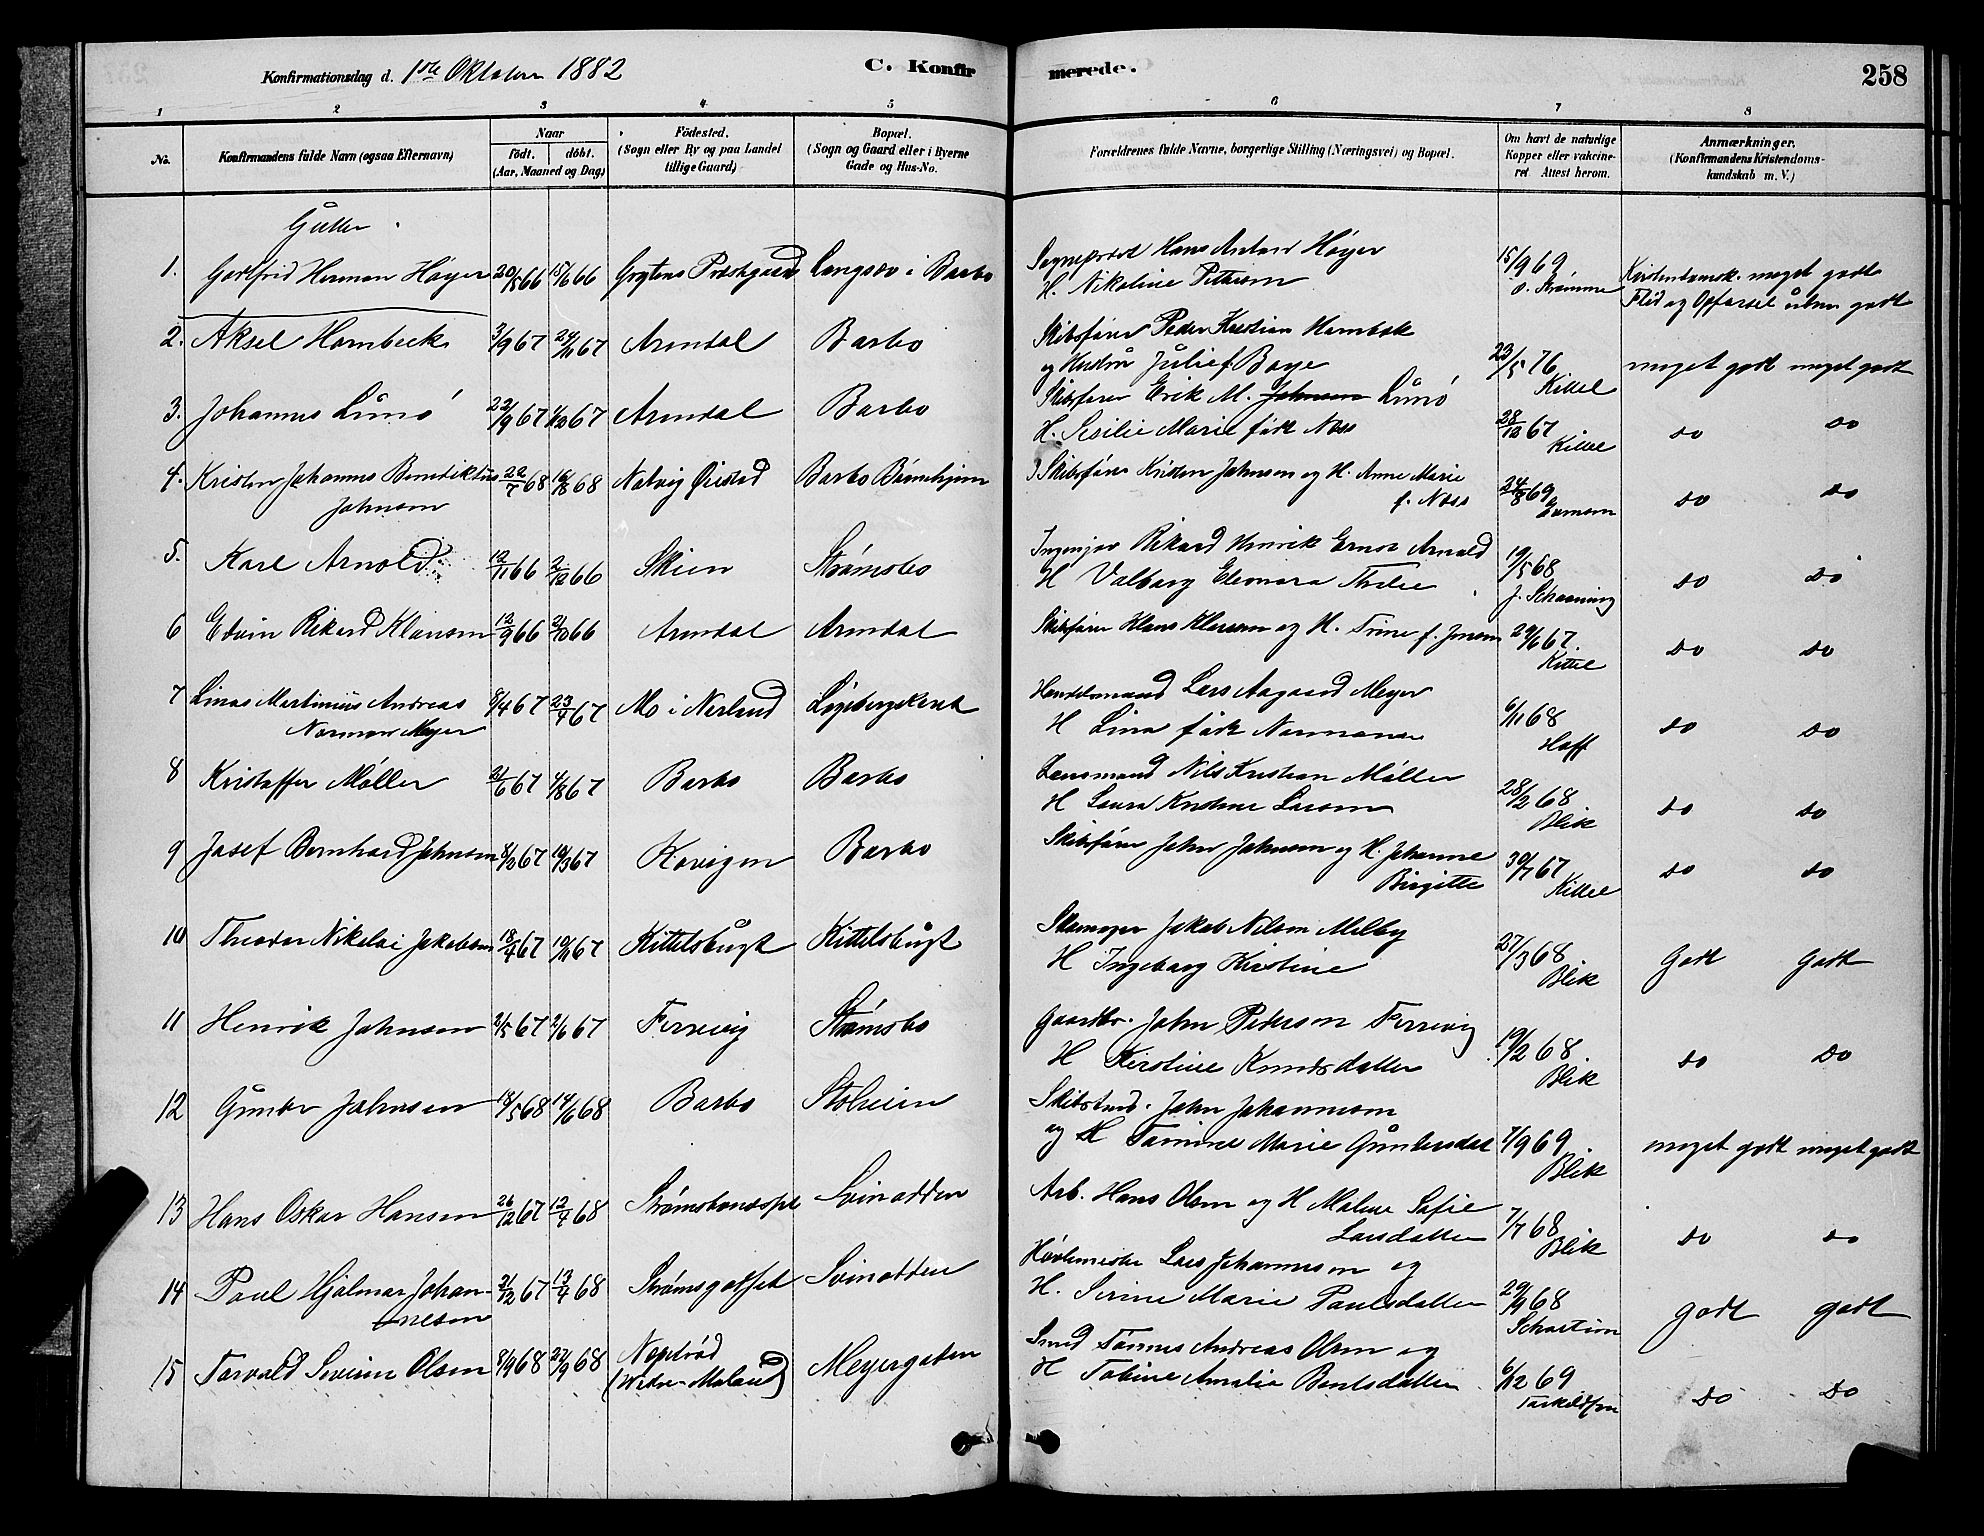 Konfirmationsdag d. 1ste Oktober 1882
C. Konfirmerede.
258
1 2 3 4 5 6 7 8
No.
Konfirmandens fulde Navn (ogsaa Efternavn)
Naar
födt. döbt.
(Aar, Maaned og Dag)
Födested.
(Sogn eller By og paa Landet
tillige Gaard)
Bopæl.
(Sogn og Gaard eller i Byerne
Gade og Hus-No.
Forældrenes fulde Navne, borgerlige Stilling (Næringsvei) og Bopæl.
Om havt de naturlige
Kopper eller vakcine-
ret Attest herom.
Anmærkninger.
(Konfirmandens Kristendoms-
kundskab m. V.)
Gutter
1. Gotfrid Herman Høyer 20/5 66 15/6 66 Grytens Præstgaard Langsæv i Barbo
Sognepræst Hans Anton Høyer
H. Nikoline Petersen
15/9 69
Kristendomsk. meget godt
Flid og Opførsel udm. godt
2. Aksel Hornbeck 3/9 67 24/11 67 Arendal Barbo
Skibsfører Peder Kristian Hornbek
og Hustru Julie f. Boye
23/5 76
Kittel
meget godt meget godt
3. Johannes Lunø 22/9 67 1/10 67 Arendal Barbo
Skibsfører Erik M. Johnsen Lunø
H. Sesilie Marie født Næss
28/12 67
Kittel
do do
4. Kristen Johannes Benediktus 22/7 68 16/8 68 Natvig Øiestad Barbo Børnehjem
Johnsen
Skibsfører Kristen Johnsen og H. Anne Marie
f. Næss
24/8 69
do do
5. Karl Arnold 12/11 66 2/12 66 Skien Strømsbo
Ingeniør Rikard Henrik Ernst Arnold
H Valborg Eleonora Thelie
19/5 68
J. Schaaning
do do
6 Edvin Rikard Klausen 12/9 66 2/10 66 Arendal Arendal
Skibsfører Klaus Klausen og H. Trine f. Jensen
29/6 67
Kittel
do do
7 Linas Martinius Andreas 8/4 67 23/4 67 Mo i Nerland
Norman Meyer
Handelsmand Lars Aagaard Meyer
H Lina født Normann
6/11 68
Hoff
do do
8 Kristoffer Møller 21/6 67 4/8 67 Barbo Barbo
Lensmand Nils Kristian Møller
H Laura Kristine Larsen
28/2 68
Blik
do do
9 Josef Bernhard Johnsen 8/2 67 10/3 67 Kovigen Barbo
Skibsfører John Johnsen og H. Johanne
Birgitte
30/7 67
Kittel
do do
10 Theodor Nikolai Jakobsen 18/4 67 10/11 67 Kittelsbugt Kittelsbugt
Skomager Jakob Nilsen Melby
H Ingeborg Kirstine
27/3 68
Blik
Godt Godt
11 Henrik Johnsen 2/5 67 2/6 67 Ferrevig Strømsbo
Gaardbr. John Pedersen Ferrevig
H Kirstine Knudsdatter
19/2 68
Blik
do do
12 Gunder Johnsen 18/5 68 14/6 68 Barbo Stølsveien
John Johannessen
og H Tomine Marie Guntersdat
7/9 69
Blik
meget godt meget godt
13 Hans Oskar Hansen 26/12 67 12/4 68 Strømsbuodspl Svinodden
Arb. Hans Olsen og H Malene Sofie
Larsdatter
7/7 68
Blik
do do
14 Paul Hjalmar Johan- 31/12 67 13/4 68 Svinodden
nesen
Lars Johannesen og
H. Serine Marie Paulsdatter
29/9 68
godt godt
15 Torvald Severin Olsen 8/9 68 27/9 68 Neptrød Meyergaten
Smed Tønnes Andreas Olsen og
H Tobine Amalie Bentsdatter
6/12 69
do do